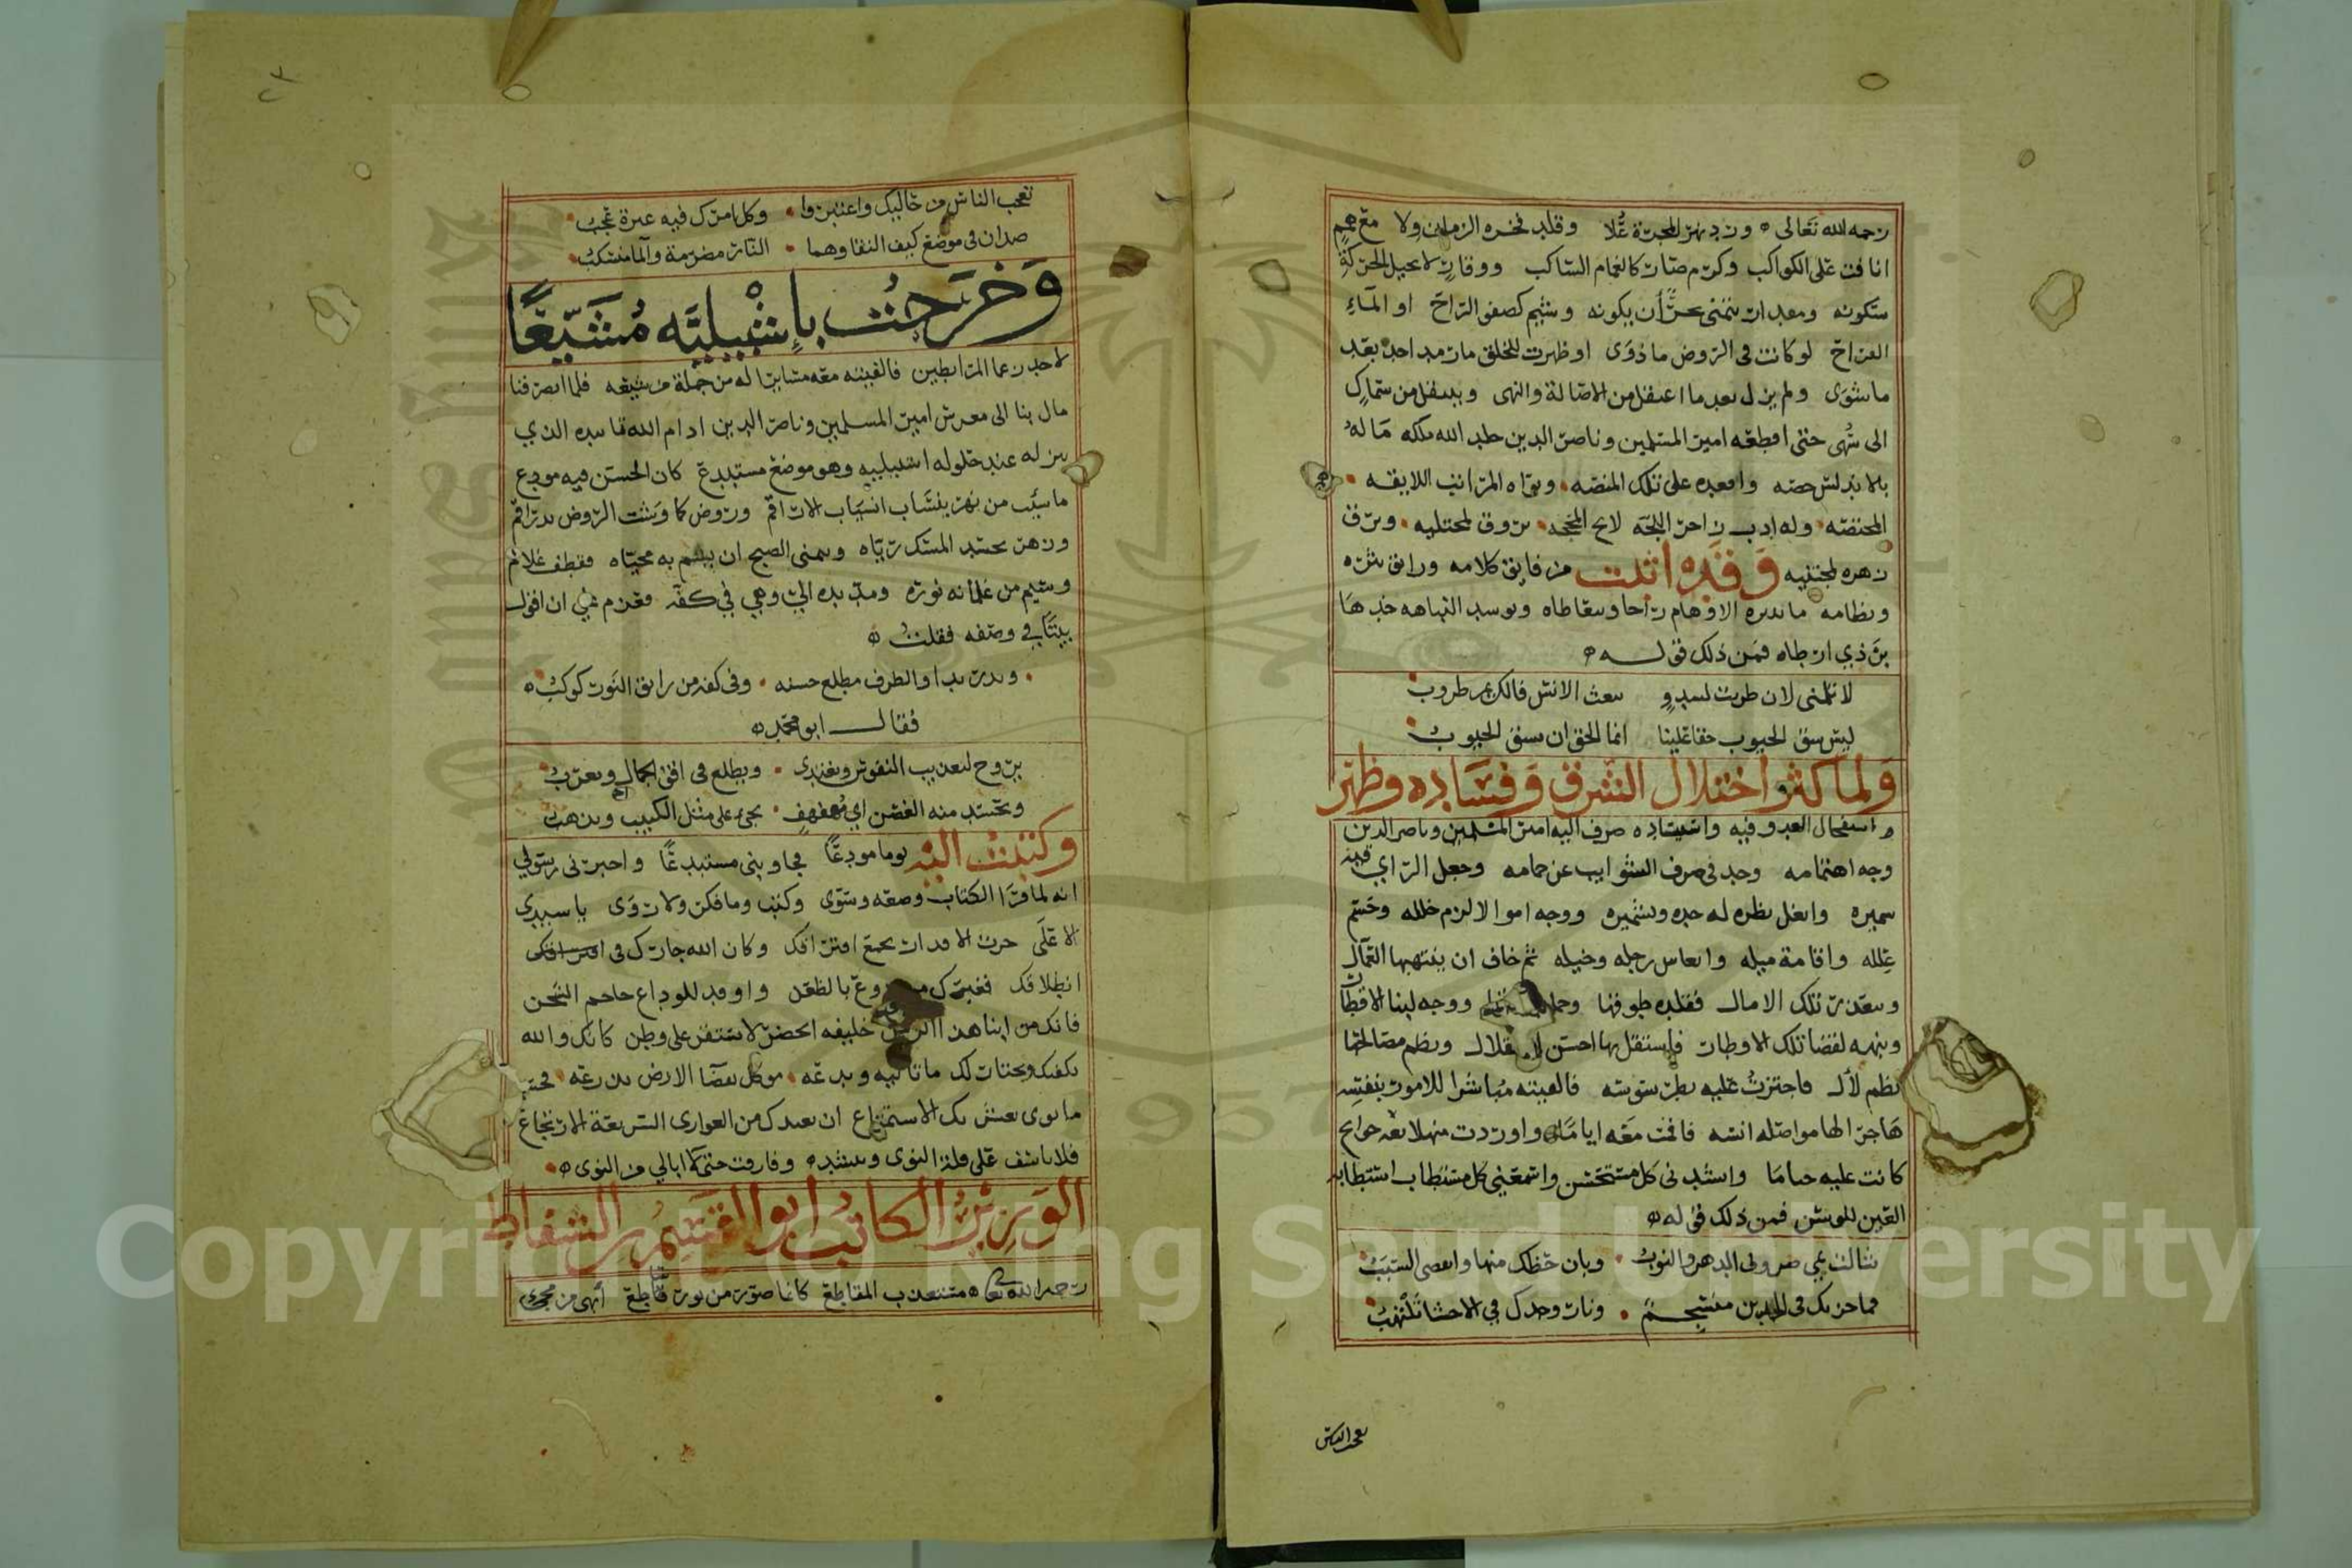 رحمه الله تعالى ورد نهر المجرة عُلا وقلد فخره الزمان ولا مع همم
انافت على الكواكب وكرم صاب كالغمام الساكب ووقار لا يحيل الحركة
سكونه ومقدار يتمنى مخبر أن يكونه وشيم كصفو الراح او الماء
القراح لو كانت في الروض ما ذوى او ظهرت للخلق ما رمد احد بعد
ما شوى ولم يزل بعد ما اعتقل من الاصالة والنهى وينتقل من سماك
الى سُهى حتى اقطعه امير المسلمين وناصر الدين خلد الله ملكه ماله
واقعده على تلك المنصه وبوأه المراتب اللايقه
المختصه وله ادب زاخر اللجه لايح المحجه يروق لمجتليه ويرف
زهره لمجتنيه وَقَد اثبت من فايق كلامه ورايق نثره
ونظامه ما تديره الاوهام راحا وتتعاطاه وتوسد النباهه خدها
برد ذي ارطاه فمن ذلك قوله
لا تلمني لان طربت لشدو يبعث الانس فالكريم طروب
ليس شق الجيوب حقا علينا انما الحق ان نشق الجيوب
وَلما كثر اختلال الشرق وَفسَاده وظهر
استفحال العدو فيه واشتداده صرف اليه امير المسلمين وناصر الدين
وجه اهتمامه وجد في صرف الشوايب عن حمامه وجعل الراي فيه
سميره واعمل نظره له جده وتشميره ووجه اموالا لرم خلله وحسم
عِلله واقامة ميله وانعاش رجله وخيله ثم خاف ان ينتهبها العمال
وتتعذر تلك الامال فقلده طوقها ووجه لبنا الاقطار
وبنهه لقضا تلك الاوطار فاستقل بها احسن استقلال ونظم مصالحها
نظم لأل فاجتزتُ عليه بطرسوسه فالفيته مُباشرا للامور بنفسه
هَاجرا لها مواصله انسه فاقمت مَعَه اياما واوردت منهلا نقع حوايح
كانت عليه حياما وانشدني كل مستحسن واسمعني كل مستطاب استطابه
العين للوسن فمن ذلك قوله
تثالث بي صروف الدهر والنوب وبان حظك منها وانقضى السبب
فماحزنك في الخدين منسجم ونار وجدك في الاحشا تلتهب
تعجب الناس
٢٣
تعجب الناس من حاليك واعتبروا وكل امرك فيه عبرة عجب
ضدان في موضع كيف التقاوهما النار مضرمة والما منسكب
وَخَرَجْتُ بإِشْبِيليَّه مُشَيِّعًا
لاحد زعما المرابطين فالفيته معه مسايرا له من جملة من شيعه فلما انصرفنا
مال بنا الى معرش امير المسلمين وناصر الدين ادام الله تاييده الذي
ينزله عند حلوله اشبيليه وهو موضع مستبدع كان الحسن فيه مودع
ما شيت من نهر ينساب انسياب الاراقم وروض كما وشت الروض يد راقم
وزهر يحسد المسك رياه ويتمنى الصبح ان يبسم به محياه فقطف غلام
وسيم من غلمانه نوره ومد يده الي وهي في كفه فعزم علي ان اقول
بيتًا في وصفه فقلت
وبدر بدا والطرف مطلع حسنه وفي كفه من رايق النور كوكب
فقال ابو محمد
يروح لتعذيب النفوس ويغتدي ويطلع في افق الجمال ويغرب
ويحسد منه الغصن اي مُهفهف يجيء على مثل الكثيب ويذهب
وكتبت اليه يوما مودعًا فجاوبني مستبدعًا واخبرني رسولي
انه لما قرا الكتاب وضعه وسوى وكتب وما فكر ولا روى يا سيدي
الا عَلى جرت الاقدار بجمع افتراقك وكان الله جارك في
انطلاقك فغيرك مـ روع بالظعن واوقد للوداع جاحم الشجن
فانك من ابنا هذا الزمن خليفه الخضر لا يستقر على وطن كانك والله
يختار لك ما تاتيه وتدعه موكل بفضا الارض يذرعه فحسب
ما نوى بعشرتك الاستمتاع ان يعدك من العواري السريعة الارتجاع
فلا ياسف على قلة النوى وينشد وفارقت حتى ما ابالي من النوى
الوَزِيرُ الكاتبُ ابو القسم بن السقاط
رحمه الله تعالى مستعذب المقاطع كانما صور من نور ساطع أبهى من محيا